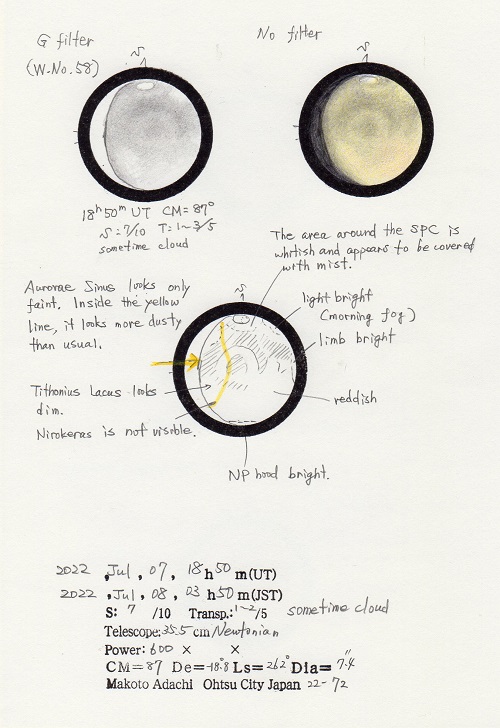 G filter
(W.No.58)
No filter
S
S
18h50m UT CM=87°
S=7/10 T=1~3/5
sometime cloud
The area around the SPC is
whitish and appears to be covered
with mist.
Aurorae Sinus looks only
faint. Inside the yellow
line, it looks more dusty
than usual.
S
light bright
(morning fog)
limb bright
Tithonius Lacus looks
dim.
reddish
Nirokeras is not visible.
NP hood bright.
2022 , Jul , 07 , 18 h 50 m (UT)
2022 , Jul , 08 , 03 h 50 m (JST)
S: 7 /10 Transp.: 1~2 /5 sometime cloud
Telescope: 35.5 cm Newtonian
Power: 600 × ×
CM= 87 De= -18.8° Ls= 262° Dia= 7.4"
Makoto Adachi Ohtsu City Japan 22-72